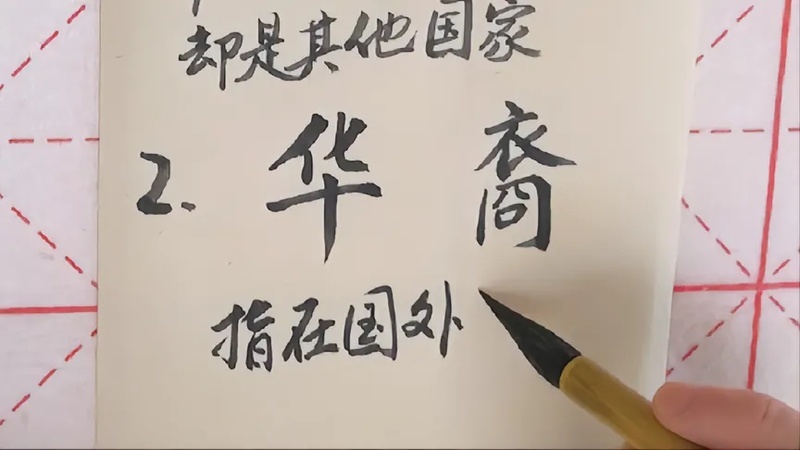 却是其他国家
2. 华裔
指在国外